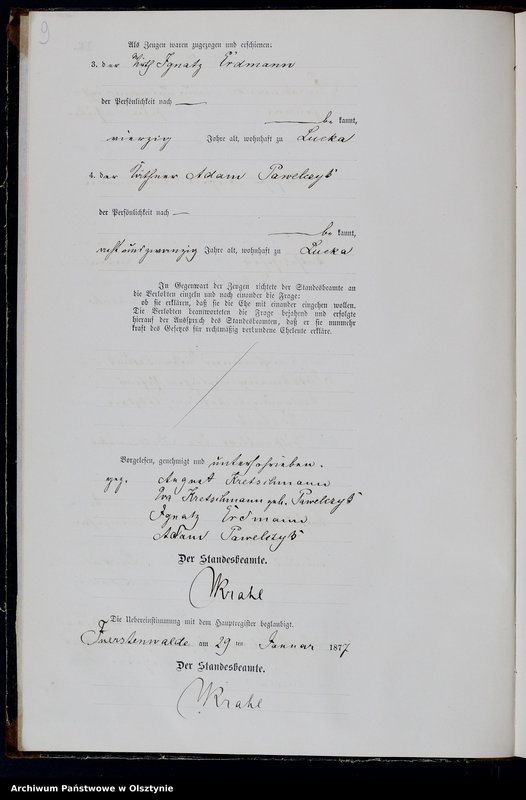 9
Als Zeugen waren zugezogen und erschienen:
3. der Wirth Ignatz Erdmann
der Persönlichkeit nach
be kannt,
vierzig Jahre alt, wohnhaft zu Lucka
4. der Käthner Adam Pawelczyk
der Persönlichkeit nach
be kannt,
acht und zwanzig Jahre alt, wohnhaft zu Lucka
In Gegenwart der Zeugen richtete der Standesbeamte an
die Verlobten einzeln und nach einander die Frage:
ob sie erklären, daß sie die Ehe mit einander eingehen wollen.
Die Verlobten beantworteten die Frage bejahend und erfolgte
hierauf der Ausspruch des Standesbeamten, daß er sie nunmehr
kraft des Gesetzes für rechtmäßig verbundene Eheleute erkläre.
Vorgelesen, genehmigt und unterschrieben.
gez. August Kretschmann
Eva Kretschmann geb. Pawelczyk
Ignatz Erdmann
Adam Pawelczyk
Der Standesbeamte.
Krahl
Die Uebereinstimmung mit dem Hauptregister beglaubigt.
Fuerstenwalde am 29 ten Januar 1877
Der Standesbeamte.
Krahl
Archiwum Państwowe w Olsztynie